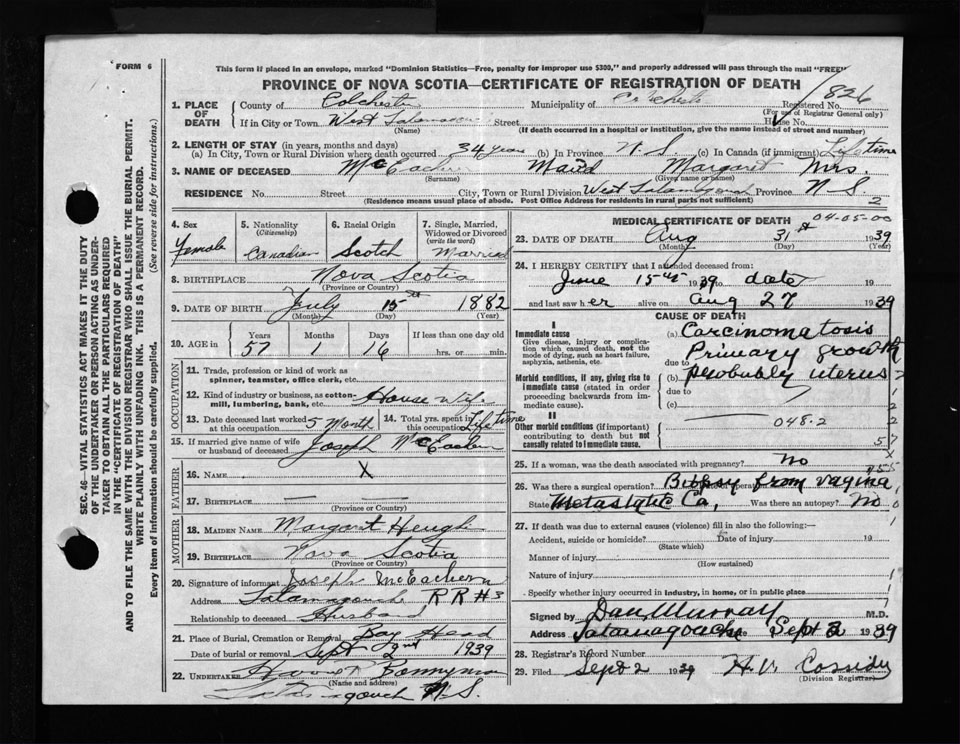 FORM 6
This form if placed in an envelope, marked "Dominion Statistics—Free, penalty for improper use $300," and properly addressed will pass through the mail "FREE"
PROVINCE OF NOVA SCOTIA—CERTIFICATE OF REGISTRATION OF DEATH
1826
1. PLACE OF DEATH
County of Colchester Municipality of Colchester Registered No.
(For use of Registrar General only)
If in City or Town West Tatamagouche Street House No.
(Name) (If death occurred in a hospital or institution, give the name instead of street and number)
2. LENGTH OF STAY (in years, months and days)
(a) In City, Town or Rural Division where death occurred 34 years (b) In Province N.S. (c) In Canada (if immigrant) Life time
3. NAME OF DECEASED McEachern Maud Margaret Mrs.
(Surname) (Given name or names)
RESIDENCE No. Street City, Town or Rural Division West Tatamagouche Province N S
(Residence means usual place of abode. Post Office Address for residents in rural parts not sufficient) 2
4. Sex Female
5. Nationality (Citizenship) Canadian
6. Racial Origin Scotch
7. Single, Married, Widowed or Divorced (write the word) Married
8. BIRTHPLACE Nova Scotia
(Province or Country)
9. DATE OF BIRTH July 15th 1882
(Month) (Day) (Year)
10. AGE in Years 57 Months 1 Days 16 If less than one day old hrs. or min.
OCCUPATION
11. Trade, profession or kind of work as spinner, teamster, office clerk, etc.
12. Kind of industry or business, as cotton-mill, lumbering, bank, etc. House wife
13. Date deceased last worked at this occupation 5 Month
14. Total yrs. spent in this occupation Life time
15. If married give name of wife or husband of deceased Joseph McEachern
FATHER
16. NAME X
17. BIRTHPLACE —
(Province or Country)
MOTHER
18. MAIDEN NAME Margaret Heugh
19. BIRTHPLACE Nova Scotia
(Province or Country)
20. Signature of informant Joseph McEachern
Address Tatamagouche R R #3
Relationship to deceased Husband
21. Place of Burial, Cremation or Removal Bay Head
Date of burial or removal Sept 2nd 1939
22. UNDERTAKER
(Name and address)
Tatamagouch N.S.
MEDICAL CERTIFICATE OF DEATH 04-05-00
23. DATE OF DEATH Aug 31st 1939
(Month) (Day) (Year)
24. I HEREBY CERTIFY that I attended deceased from:
June 15th 1939 to date 19
and last saw her alive on Aug 27 1939
CAUSE OF DEATH
I
Immediate cause
Give disease, injury or complication which caused death, not the mode of dying, such as heart failure, asphyxia, asthenia, etc.
(a) Carcinomatosis
Primary growth
due to
Morbid conditions, if any, giving rise to immediate cause (stated in order proceeding backwards from immediate cause).
(b) probably uterus
due to
(c)
II
Other morbid conditions (if important) contributing to death but not causally related to immediate cause.
048-2
25. If a woman, was the death associated with pregnancy? No
26. Was there a surgical operation? Biopsy from vagina
State Metastatic Ca, Was there an autopsy? No
27. If death was due to external causes (violence) fill in also the following:—
Accident, suicide or homicide? Date of injury 19
(State which)
Manner of injury
(How sustained)
Nature of injury
Specify whether injury occurred in industry, in home, or in public place
Signed by Dan Murray M.D.
Address Tatamagouche Date Sept 2 1939
28. Registrar's Record Number
29. Filed Sept 2 1939 H. W. Cassidy
(Division Registrar)
SEC. 46—VITAL STATISTICS ACT MAKES IT THE DUTY
OF THE UNDERTAKER OR PERSON ACTING AS UNDERTAKER TO OBTAIN ALL THE PARTICULARS REQUIRED
IN THE "CERTIFICATE OF REGISTRATION OF DEATH"
AND TO FILE THE SAME WITH THE DIVISION REGISTRAR WHO SHALL ISSUE THE BURIAL PERMIT.
WRITE PLAINLY WITH UNFADING INK. THIS IS A PERMANENT RECORD.
Every item of information should be carefully supplied. (See reverse side for instructions.)